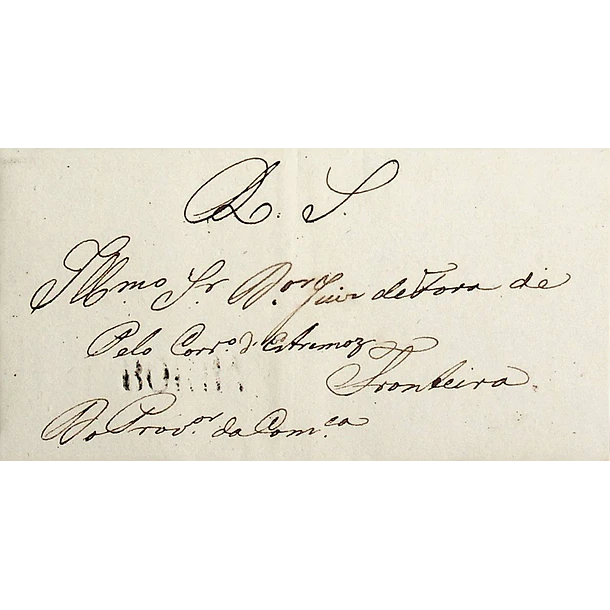 R. S.
Illmo Sr Dor Juiz de Fora de
Pelo Corro d'Estremoz
Fronteira
Do Provor da Comca